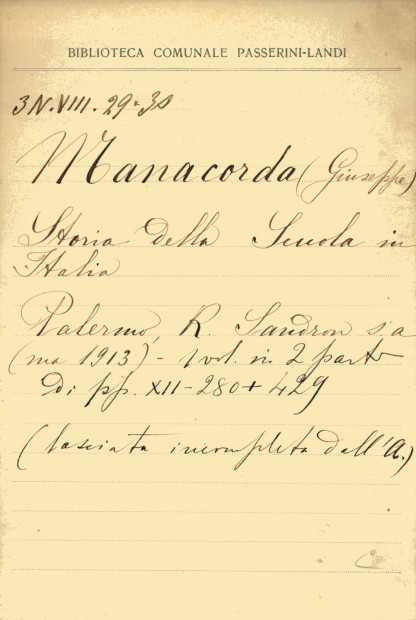 BIBLIOTECA COMUNALE PASSERINI-LANDI
3N.VIII.29-30
Manacorda (Giuseppe)
Storia della Scuola in
Italia
Palermo, R. Sandron s.a
(ma 1913) - 1 vol. in 2 parti
di pp. XII-280+429
(lasciata incompleta dall'A.)
C